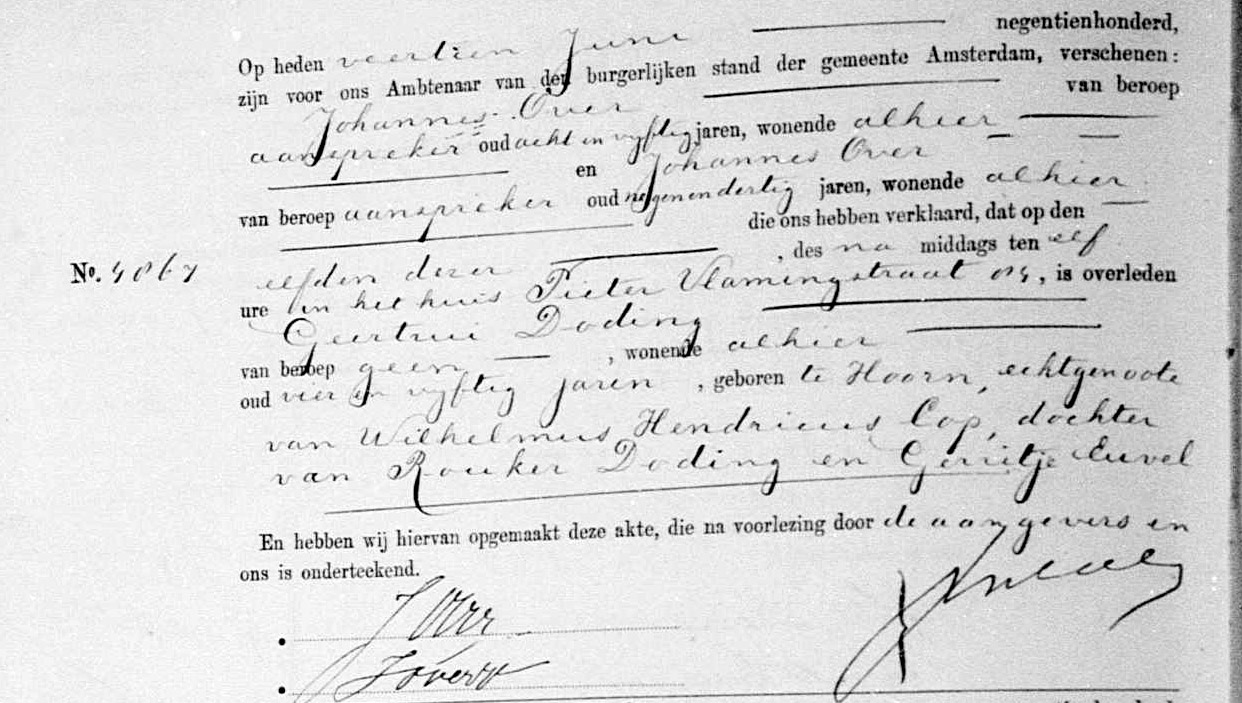 Op heden veertien Juni negentienhonderd,
zijn voor ons Ambtenaar van den burgerlijken stand der gemeente Amsterdam, verschenen:
Johannes Over van beroep
aanspreker oud acht en vyftig jaren, wonende alhier
en Johannes Over
van beroep aanspreker oud negenendertig jaren, wonende alhier
die ons hebben verklaard, dat op den
elfden dezer , des na middags ten elf
No.
ure in het huis Pieter Vlamingstraat , is overleden
Geertrui Doding
van beroep geen , wonende alhier
oud vier en vyftig jaren , geboren te Hoorn, echtgenoote
van Wilhelmus Hendricus Cop, dochter
van Rouker Doding en Gerritje Euvel
En hebben wij hiervan opgemaakt deze akte, die na voorlezing door de aangevers en
ons is onderteekend.
J Over
J Over